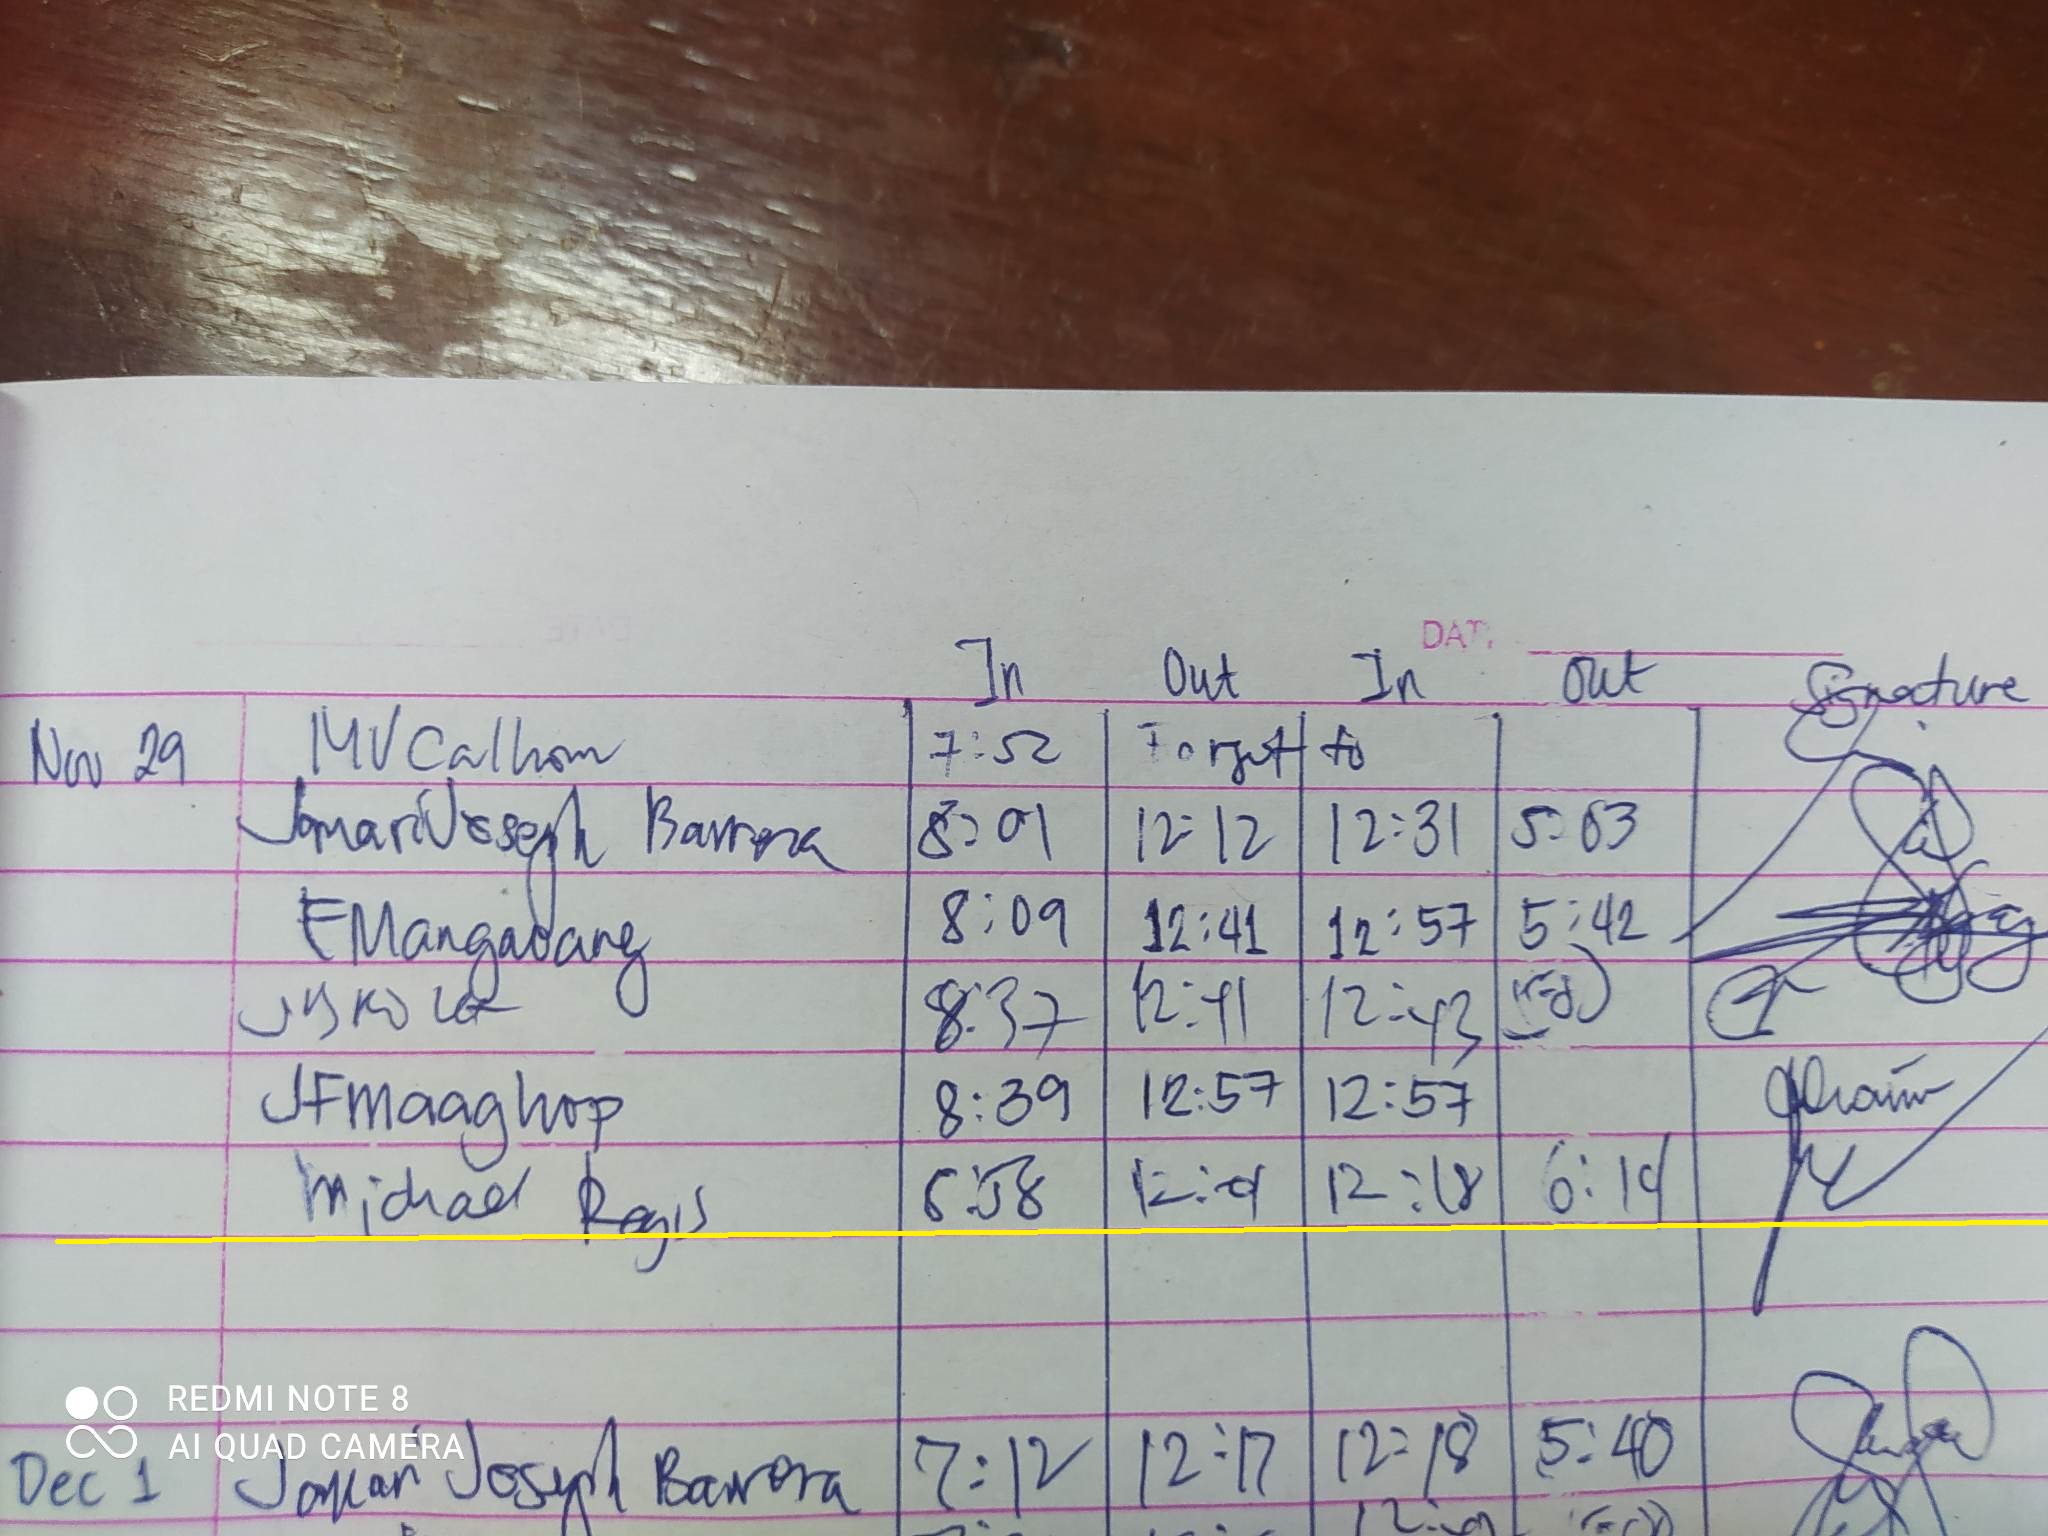 DAT.
In Out In Out Signature
Nov 29 MV Calhom 7:52 Forget to
Jomari Joseph Barrera 8:01 12:12 12:31 5:03
FMangabang 8:09 12:41 12:57 5:42
8:37 12:41 12:43
JFMaaghop 8:39 12:57 12:57
Michael Regis 6:58 12:18 6:14
Dec 1 Jomari Joseph Barrera 7:12 12:17 12:18 5:40
REDMI NOTE 8
AI QUAD CAMERA